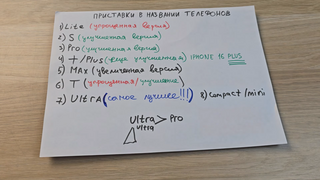 ПРИСТАВКИ В НАЗВАНИИ ТЕЛЕФОНОВ
1) Lite (упрощённая версия)
2) S (улучшенная версия)
3) Pro (улучшенная версия)
4) + /Plus (ещё улучшенная) IPHONE 16 PLUS
5) MAX (увеличенная версия)
6) T (упрощённая/улучшение)
7) Ultra (самое лучшее!!!) 8) Compact/mini
Ultra > Pro
Ultra